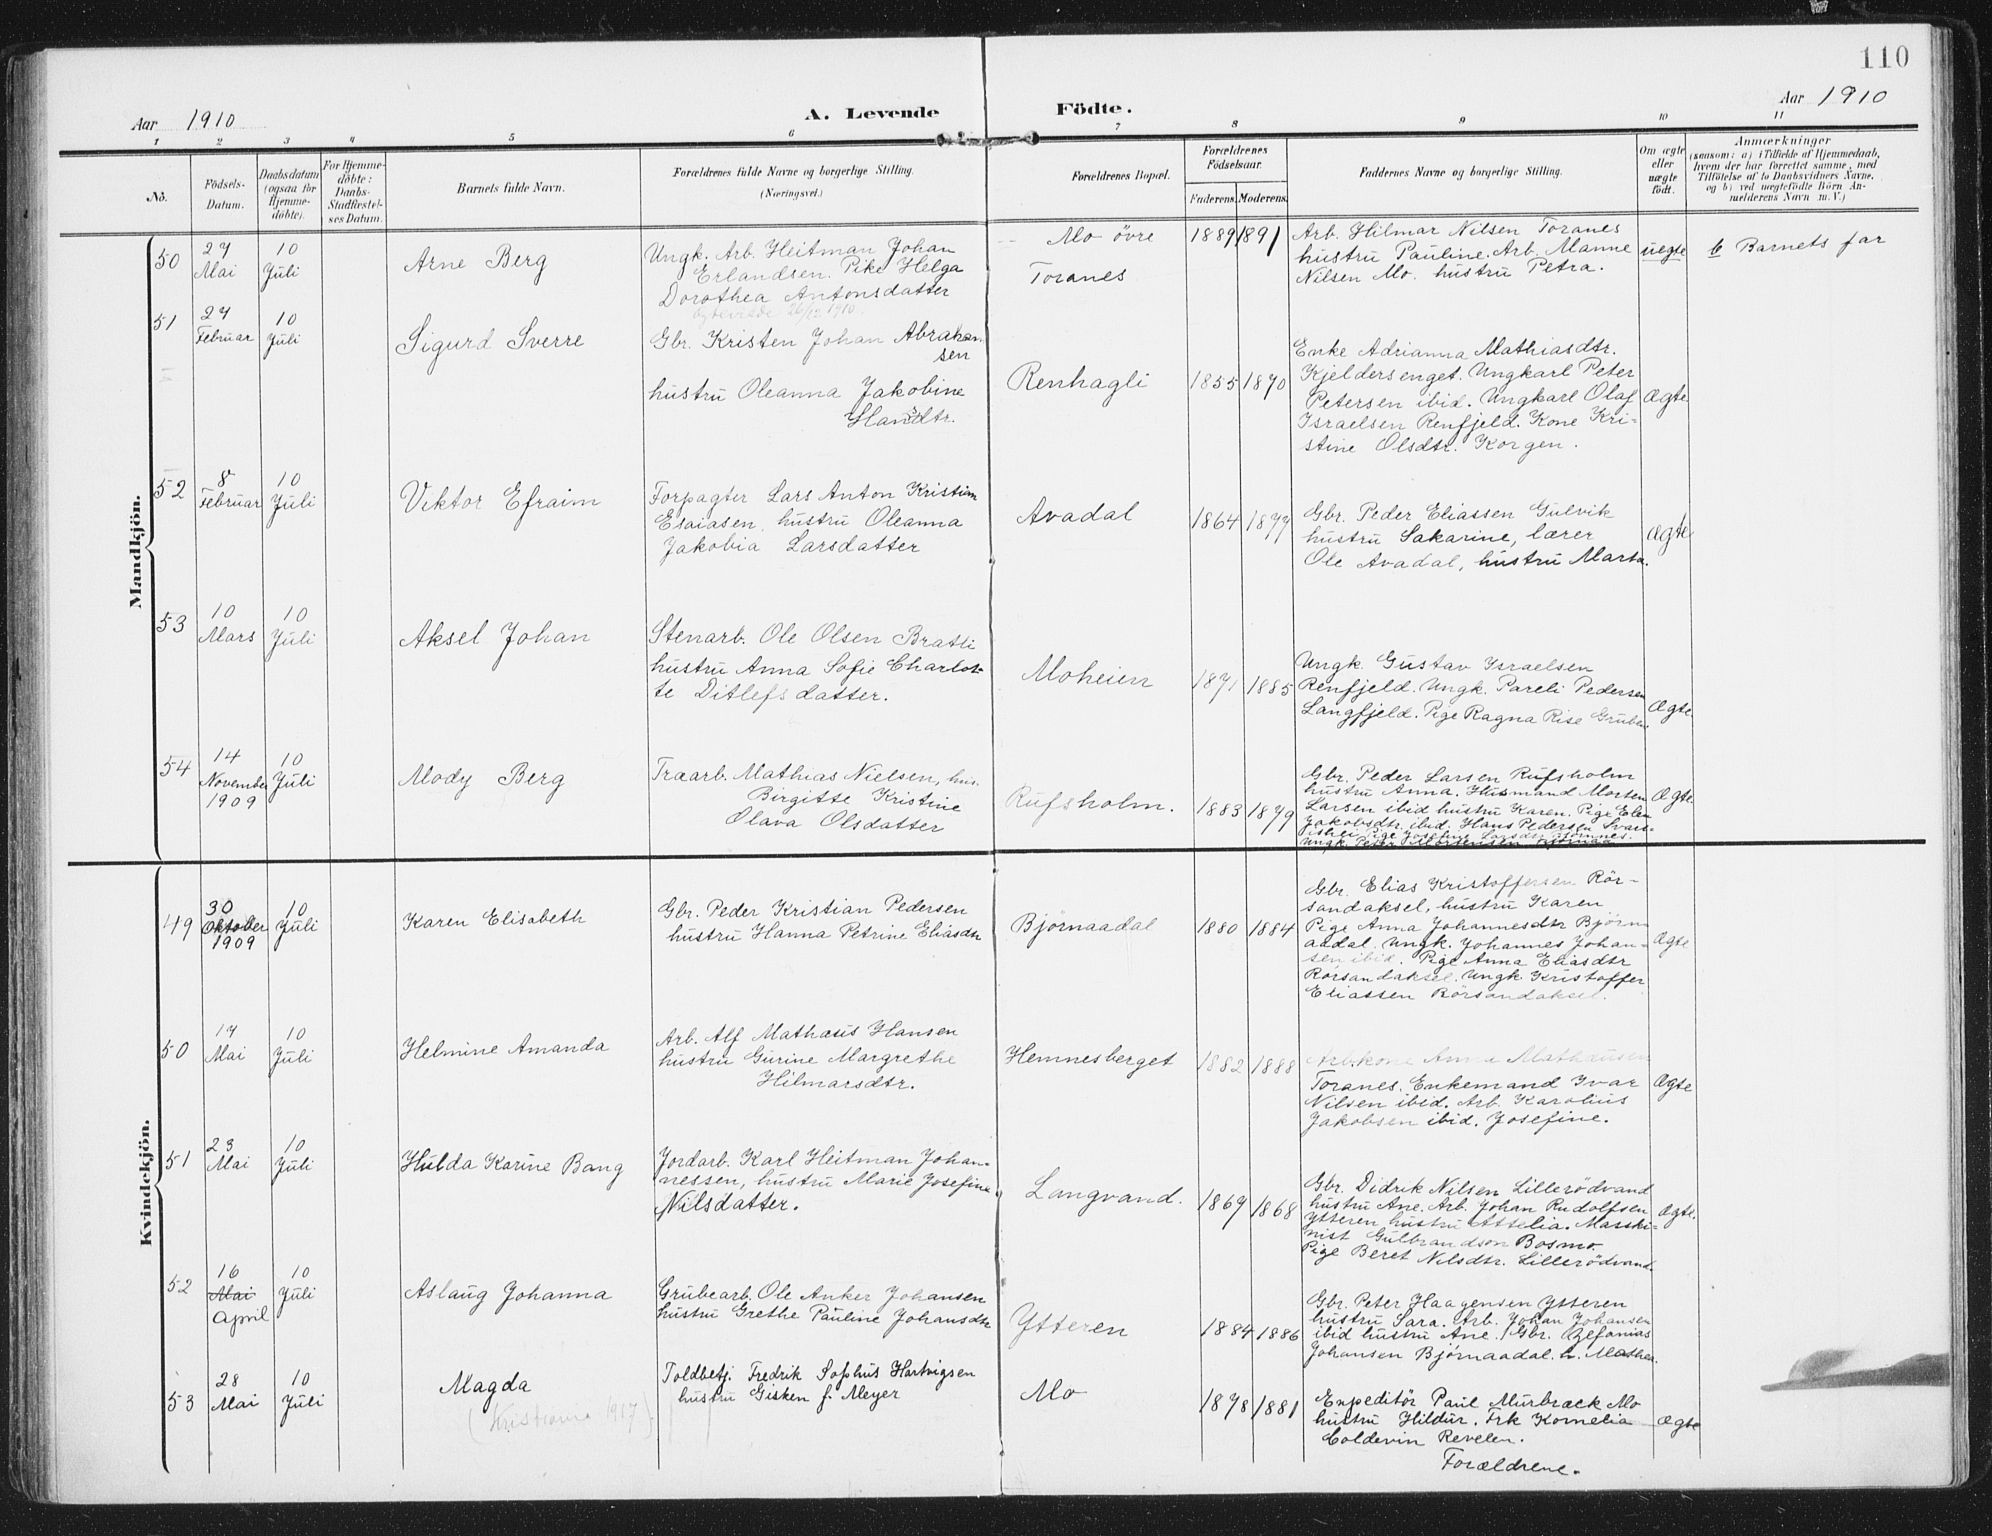 110
Aar 1910
A. Levende
Födte.
Aar 1910
1 2 3 4 5 6 7 8 9 10 11
No.
Födsels-
Datum.
Daabsdatum
(ogsaa for
Hjemme-
döbte).
For Hjemme-
döbte:
Daabs-
Stadfæstel-
ses Datum.
Barnets fulde Navn.
Forældrenes fulde Navne og borgerlige Stilling.
(Næringsvei.)
Forældrenes Bopæl.
Forældrenes
Födselsaar.
Faderens. Moderens.
Faddernes Navne og borgerlige Stilling.
Om ægte
eller
uægte
födt.
Anmærkninger
(saasom: a) i Tilfælde af Hjemmedaab,
hvem der har forrettet samme, med
Tilföielse af to Daabsvidners Navne,
og b) ved uægtefödte Börn An-
melderens Navn m. V.)
Mandkjön.
50
27
Mai
10
Juli
Arne Berg
Ungk. Arb. Heitman Johan
Erlandsen. Pike Helga
Dorothea Antonsdatter
Mo övre
Toranes
1889 1891
Arb. Hilmar Nilsen Toranes
hustru Pauline. Arb. Manne
Nilsen Mo. hustru Petra.
uegte
b Barnets far
51
27
Februar
10
Juli
Sigurd Sverre
Gbr. Kristen Johan Abraham
sen
hustru Oleanna Jakobine
Hansdtr.
Renhagli
1855 1870
Enke Adrianna Mathiasdtr.
Kjeldersenget. Ungkarl Peter
Petersen ibid. Ungkarl Olaf
Israelsen Renfjeld. Kone Kri-
stine Olsdtr. Korgen.
Ægte
52
8
Februar
10
Juli
Viktor Efraim
Forpagter Lars Anton Kristian
Esaiasen, hustru Oleanna
Jakobia Larsdatter
Avadal
1864 1877
Gbr. Peder Eliassen Gulvik
hustru Sakarine, lærer
Ole Avadal, hustru Marta.
Ægte
53
10
Mars
10
Juli
Aksel Johan
Stenarb. Ole Olsen Bratli
hustru Anna Sofie Charlot-
te Ditlefsdatter.
Moheien
1871 1885
Ungk. Gustav Israelsen
Renfjeld. Ungk. Pareli Pedersen
Langfjeld. Pige Ragna Rise Gruben
Ægte.
54
14
November
1909
10
Juli
Mody Berg
Træarb. Mathias Nielsen, hus.
Birgitte Kristine
Olava Olsdatter
Rufsholm.
1883 1879
Gbr. Peder Larsen Rufsholm
hustru Anna. Husmand Morten
Larsen ibid hustru Karen. Pige Elen
Jakobsdtr. ibid. Hans Pedersen
Ungk. Peter Mortensen
Ægte
Kvindekjön.
49
30
Oktober
1909
10
Juli
Karen Elisabeth
Gbr. Peder Kristian Pedersen
hustru Hanna Petrine Eliasdtr
Björnaadal
1880 1884
Gbr. Elias Kristoffersen Rör-
sandaksel, hustru Karen
Pige Anna Johannesdtr Björn-
aadal. Ungk. Johannes Johan-
sen ibid. Pige Anna Eliasdtr
Rörsandaksel. Ungk. Kristoffer
Eliassen Rörsandaksel.
Ægte
50
17
Mai
10
Juli
Helmine Amanda
Arb. Alf Mathæus Hansen
hustru Gurine Margrethe
Hilmarsdtr.
Hemnesberget
1882 1888
Arb.kone Anna Mathæusen
Toranes. Enkemand Ivar
Nilsen ibid. Arb. Karolius
Jakobsen ibid. Josefine.
Ægte
51
23
Mai
10
Juli
Hulda Karine Bang
Jordarb. Karl Heitman Johan-
nessen, hustru Marie Josefine
Nilsdatter.
Langvand.
1869 1868
Gbr. Didrik Nilsen Lillerödvand
hustru Ane. Arb. Johan Rudolfsen
Ytteren hustru Attelia. Masski-
nist Gulbrandson Bosmo.
Pige Beret Nilsdtr. Lillerödvand.
Ægte.
52
16
Mai
April
10
Juli
Aslaug Johanna
Grubearb. Ole Anker Johansen
hustru Grethe Pauline Johansdtr
Ytteren
1884 1886
Gbr. Peter Haagensen Ytteren
hustru Sara. Arb. Johan Johansen
ibid hustru Ane. Gbr. Zefanias
Johansen Björnaadal. h. Mathea.
53
28
Mai
10
Juli
Magda
(Kristiania 1917)
Toldbetj. Fredrik Sophus Hartvigsen
hustru Gisken f. Meyer
Mo
1878 1881
Expeditör Paul Murbræck Mo
hustru Hildur. Frk Kornelia
Coldevin Revelen.
Forældrene.
Ægte